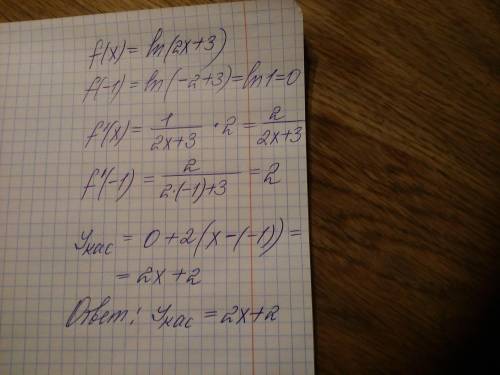 f(x) = ln(2x+3)
f(-1) = ln(-2+3) = ln1 = 0
f'(x) = 1/(2x+3) · 2 = 2/(2x+3)
f'(-1) = 2/(2·(-1)+3) = 2
Yкас = 0+2(x-(-1)) =
= 2x+2
Ответ: Yкас = 2x+2